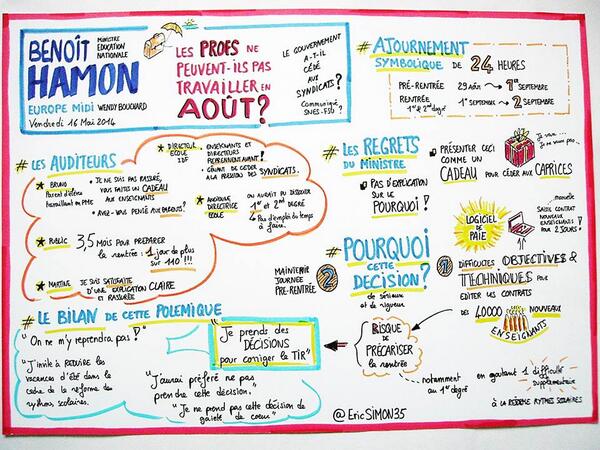 BENOÎT
HAMON
MINISTRE
EDUCATION
NATIONALE
EUROPE MIDI WENDY BOUCHARD
Vendredi 16 Mai 2014
LES PROFS NE
PEUVENT-ILS PAS
TRAVAILLER EN
AOÛT?
LE GOUVERNEMENT
A-T-IL
CÉDÉ
AUX
SYNDICATS?
Communiqué
SNES-FSU
# AJOURNEMENT
SYMBOLIQUE DE 24 HEURES
PRÉ-RENTRÉE 29 AOÛT → 1er SEPTEMBRE
RENTRÉE 1er SEPTEMBRE → 2 SEPTEMBRE
1er & 2nd degré
# LES AUDITEURS
BRUNO
Parent d'élève
travaillant en PME
JE NE SUIS PAS RASSURÉ,
VOUS FAITES UN CADEAU
AUX ENSEIGNANTS
AVEZ-VOUS PENSÉ AUX PARENTS?
DIRECTEUR
ECOLE
IDF
ENSEIGNANTS ET
DIRECTEURS
REPRENNENT AVANT!
CÉDER
A LA PRESSION DES SYNDICATS.
DIRECTRICE
ECOLE
ON AURAIT PU DISSOCIER
1er ET 2nd
DEGRÉ
Pas d'emploi du temps
à faire.
PUBLIC 3,5 MOIS POUR PRÉPARER
la rentrée: 1 jour de plus
sur 110!!!
MARTINE JE SUIS SATISFAITE
D'UNE EXPLICATION CLAIRE
ET RASSURÉE
# LES REGRETS
DU MINISTRE
PAS D'EXPLICATION
SUR LE
POURQUOI!
PRÉSENTER CECI
COMME UN
CADEAU POUR CÉDER AUX CAPRICES
# POURQUOI
CETTE
DÉCISION?
de sérieux
et de rigueur
MAINTENIR
JOURNÉE
PRÉ-RENTRÉE
2
1
LOGICIEL
DE
PAIE
manuelle
SAISIE CONTRAT
NOUVEAUX
ENSEIGNANTS!
POUR 2 JOURS!
DIFFICULTÉS OBJECTIVES &
TECHNIQUES POUR
EDITER LES CONTRATS
DES 40000 NOUVEAUX
ENSEIGNANTS
RISQUE
DE
PRÉCARISER
la rentrée
notamment
au 1er degré
en ajoutant 1 difficulté
supplémentaire
À LA RÉFORME RYTHMES SCOLAIRES
# LE BILAN DE CETTE POLEMIQUE
"On ne m'y reprendra pas!"
"J'invite à RÉDUIRE LES
vacances d'été dans le
cadre de la réforme des
rythmes scolaires."
"Je prends des
DÉCISIONS
pour corriger le TIR"
"J'aurai préféré ne pas
prendre cette décision."
"Je ne prend pas cette décision de
gaieté de coeur"
@EricSIMON35